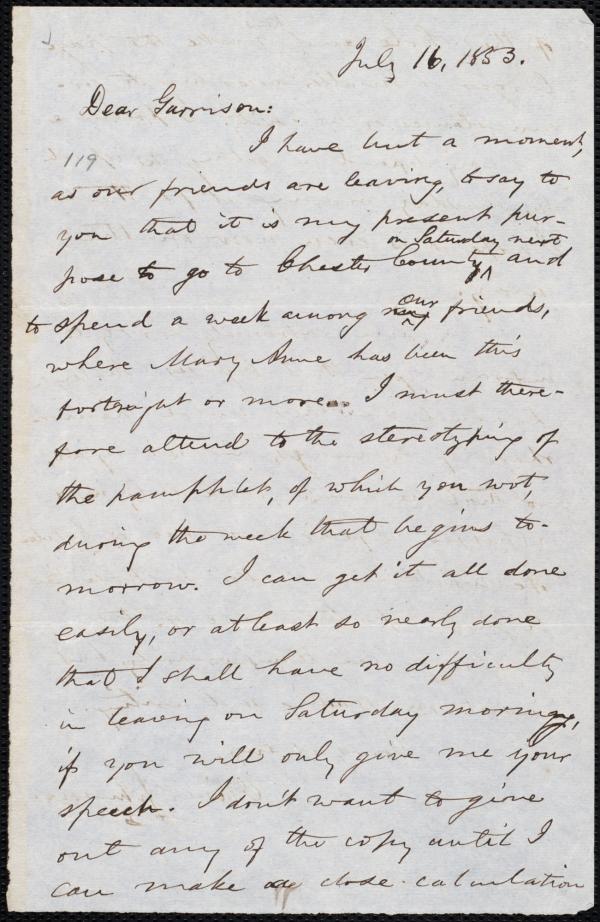 July 16, 1853.
Dear Garrison:
I have but a moment,
119
as our friends are leaving, to say to
you that it is my present pur-
on Saturday next
pose to go to Chester County ^ and
to spend a week among our friends,
where Mary Anne has been this
fortnight or more. I must there-
fore attend to the stereotyping of
the pamphlet, of which you wot,
during the week that begins to-
morrow. I can get it all done
easily, or at least so nearly done
that I shall have no difficulty
in leaving on Saturday morning,
if you will only give me your
speech. I don't want to give
out any of the copy until I
can make a close calculation